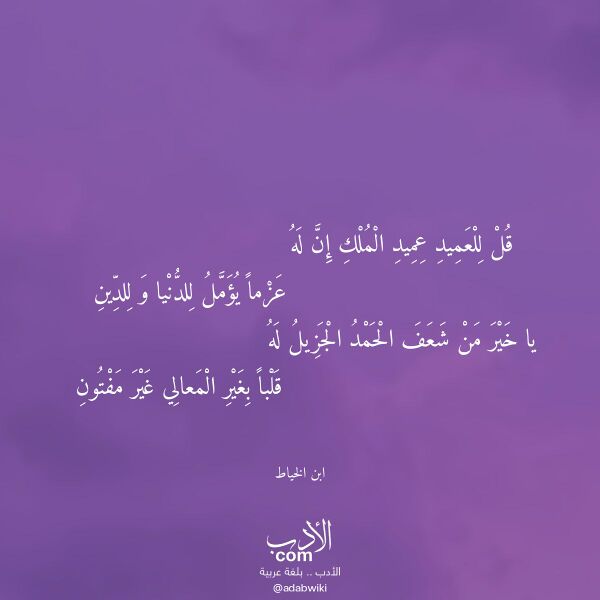 قُلْ لِلْعَمِيدِ عِمِيدِ الْمُلْكِ إِنَّ لَهُ
عَزْماً يُؤَمَّلُ لِلدُّنْيا وَ لِلدِّينِ
يا خَيْرَ مَنْ شَعَفَ الْحَمْدُ الْجَزِيلُ لَهُ
قَلْباً بِغَيْرِ الْمَعالِي غَيْرَ مَفْتُونِ
ابن الخياط
الأدب
com
الأدب .. بلغة عربية
@adabwiki